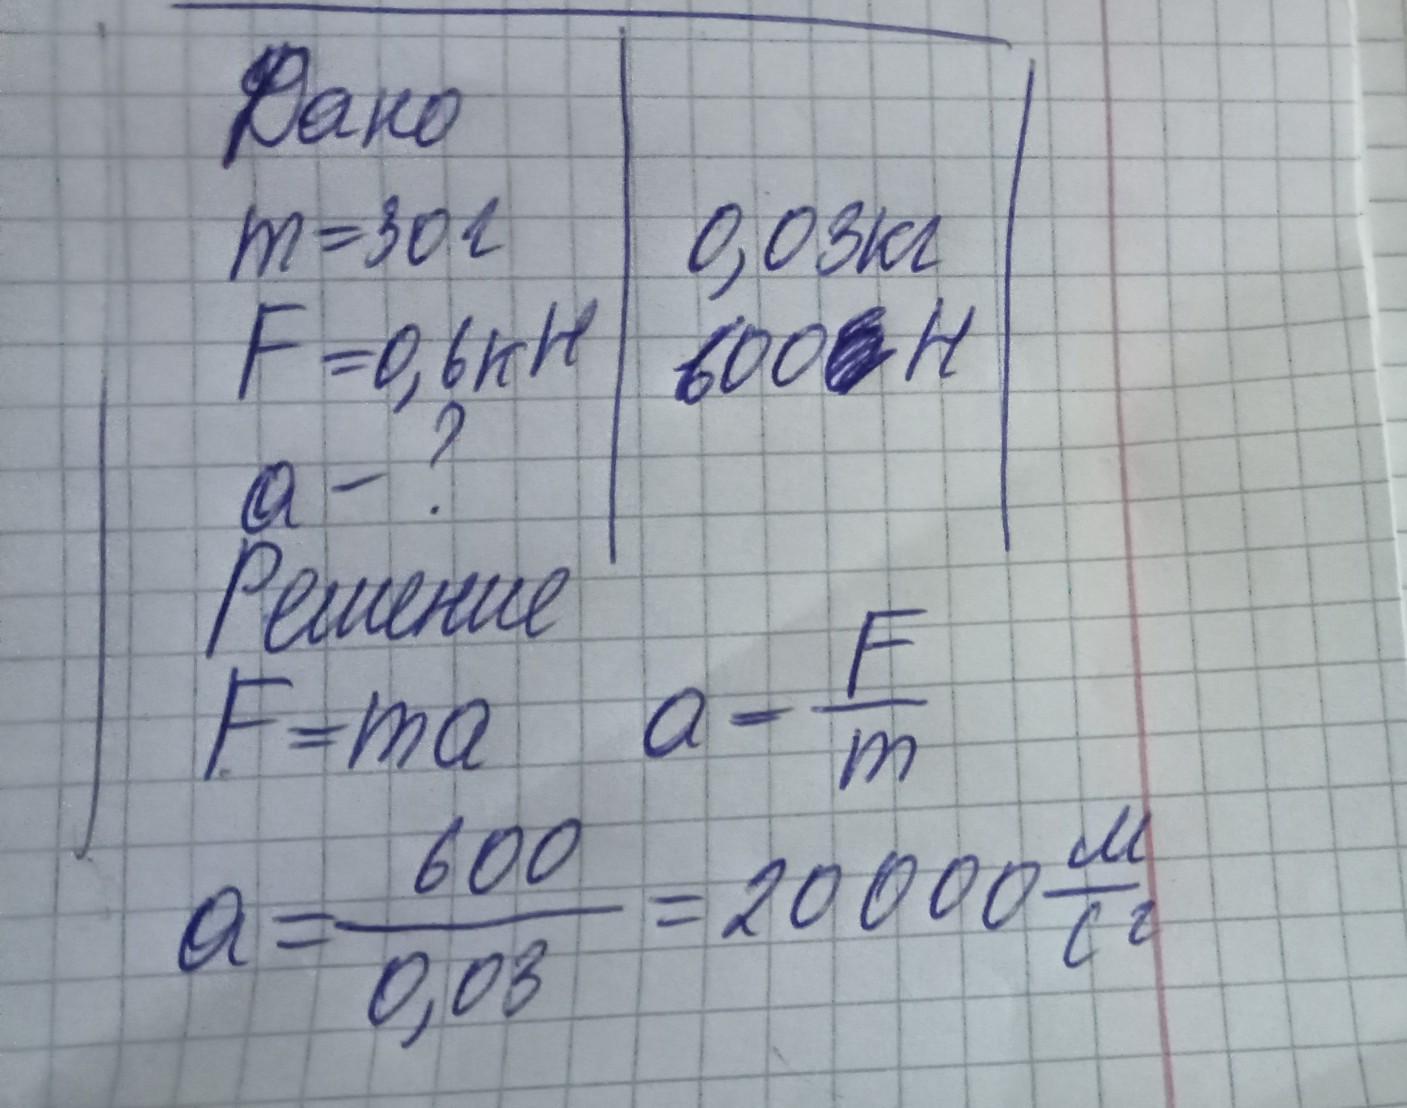 Дано
m=30г 0,03кг
F=0,6кН 600 Н
a-?
Решение
F=ma a=F/m
a=600/0,03=20000 м/с²